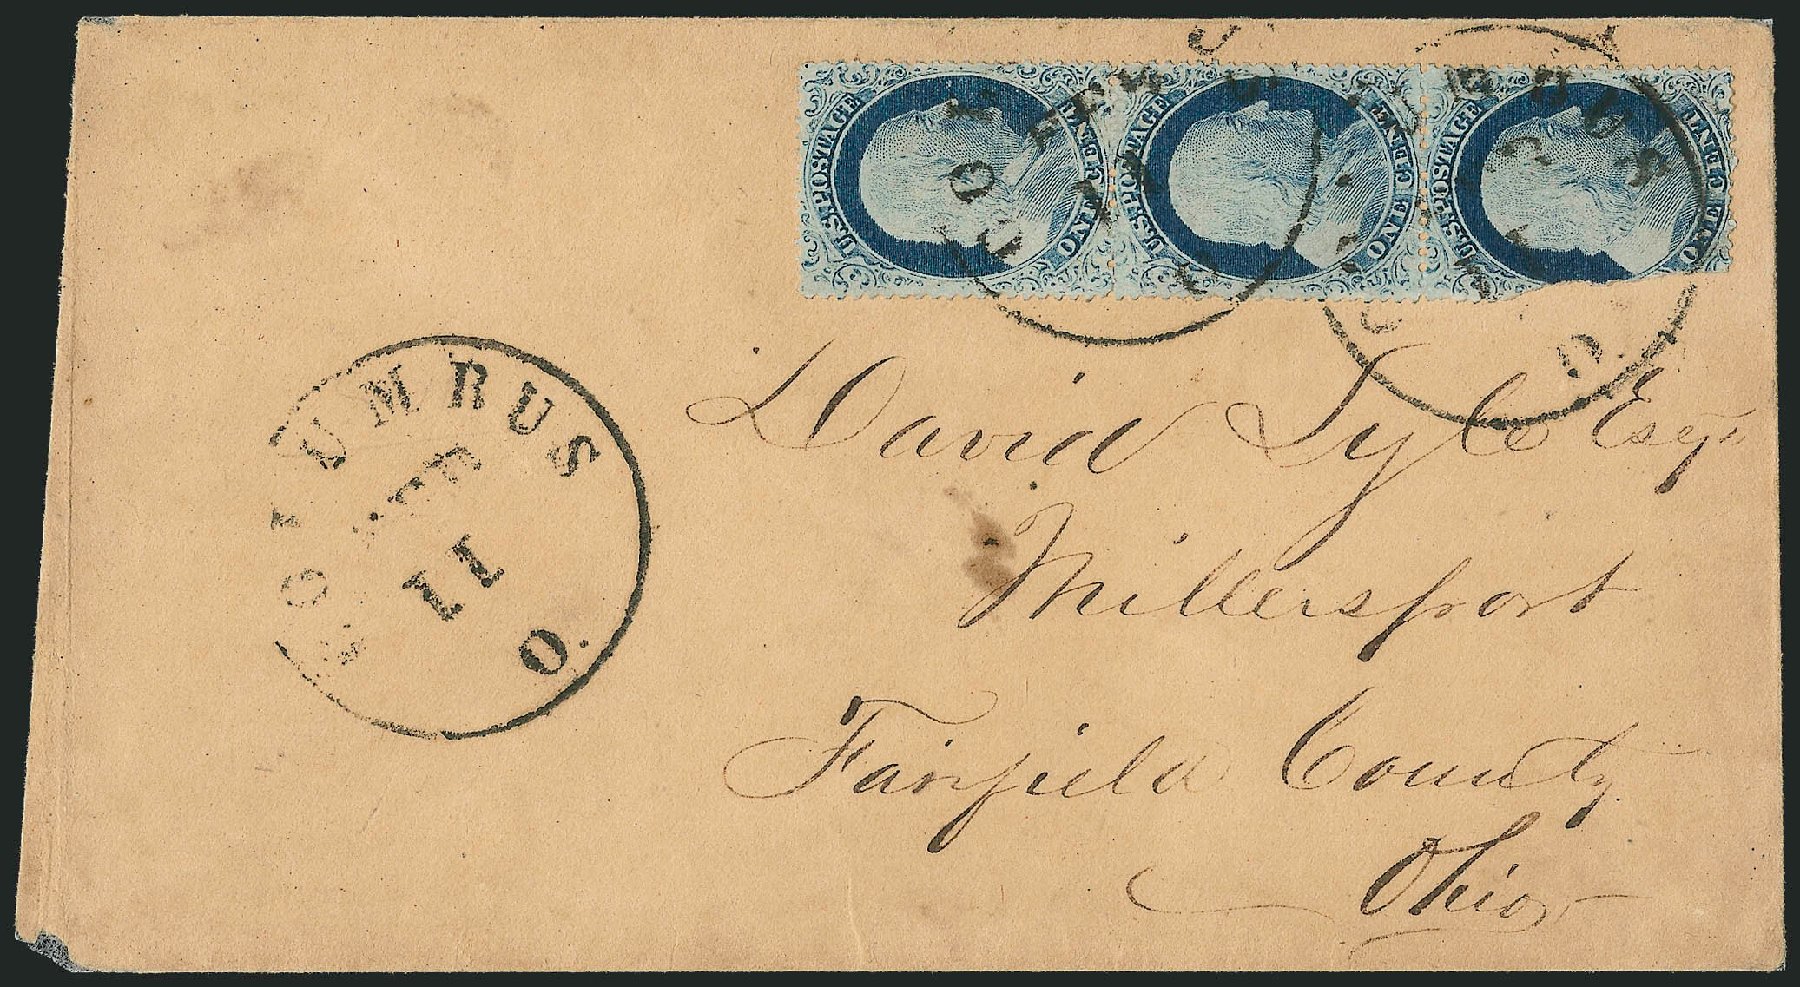 U.S. POSTAGE ONE CENT
U.S. POSTAGE ONE CENT
U.S. POSTAGE ONE CENT
COLUMBUS
11
O.
David Lyle Esqr
Millersport
Fairfield County
Ohio